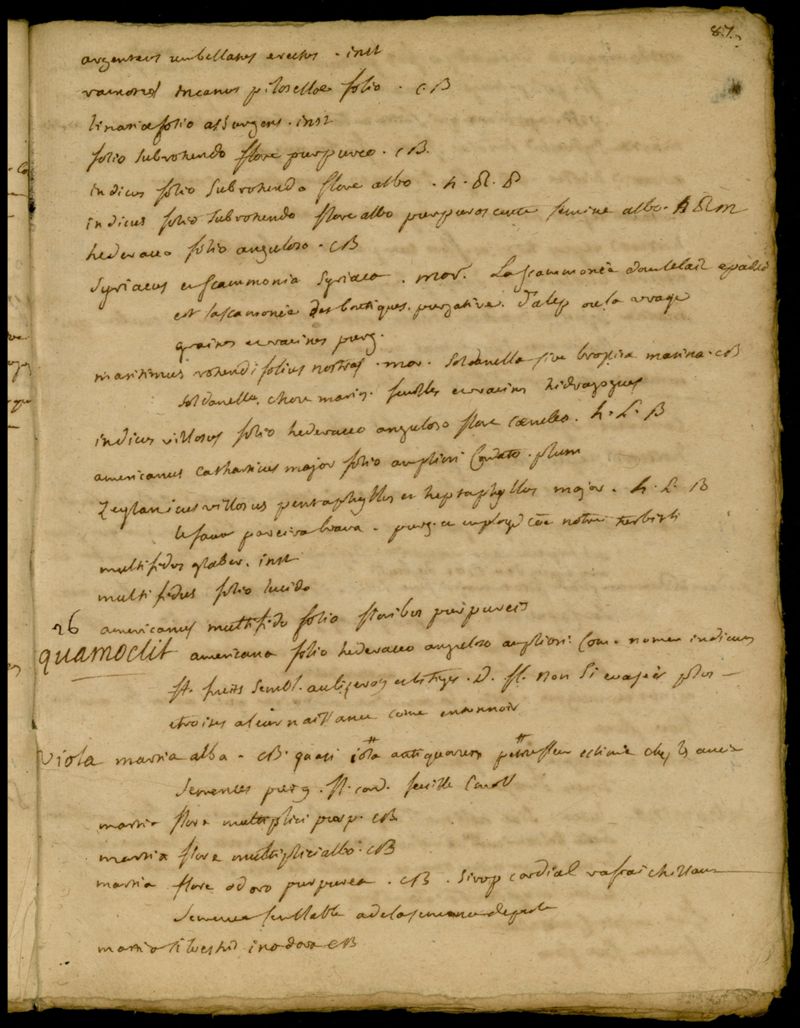 87.
argenteus umbellatus erectus . inst
ramosus incanus pilosellae folio . CB
linariae folio assurgens . inst
folio subrotundo flore purpureo . CB.
indicus folio subrotundo flore albo . h. R. P
indicus folio subrotundo flore albo purpurascente semine albo .
hederaceo folio anguloso . CB
Syriacus et scammonia Syriaca . mor. La scammonée dont le lait
est la scamonée des boutiques. purgative. Jalap ou la vraye
graines et racines purg.
maritimus rotundifolius nostras . mor. Soldanella sive brassica marina . CB
soldanelle, choux marins. feuilles et racines hidragogues
indicus villosus folio hederaceo anguloso flore caeruleo . h. L. B
americanus catharticus major folio ampliori cordato . plum
Zeylanicus villosus pentaphyllos et heptaphyllos major . h. L. B
pareira brava . purg. notre turbith
multifidus glaber . inst
multifidus folio lucido
americanus multifido folio floribus purpureis
26
quamoclit americana folio hederaceo anguloso ampliori Com. nomen indicum
fl. fruits sembl. D. fl. non si evasée plus
etroites a leur naissance come entonnoir
Viola martia alba . CB. quasi iola antiquorum
semences purg. fl. cord.
martia flore multiplici purp. CB
martia flore multiplici albo . CB
martia flore odoro purpurea . CB . sirop cordial rafraichissant
semence semblable a de la semence de
martia silvestris inodora CB